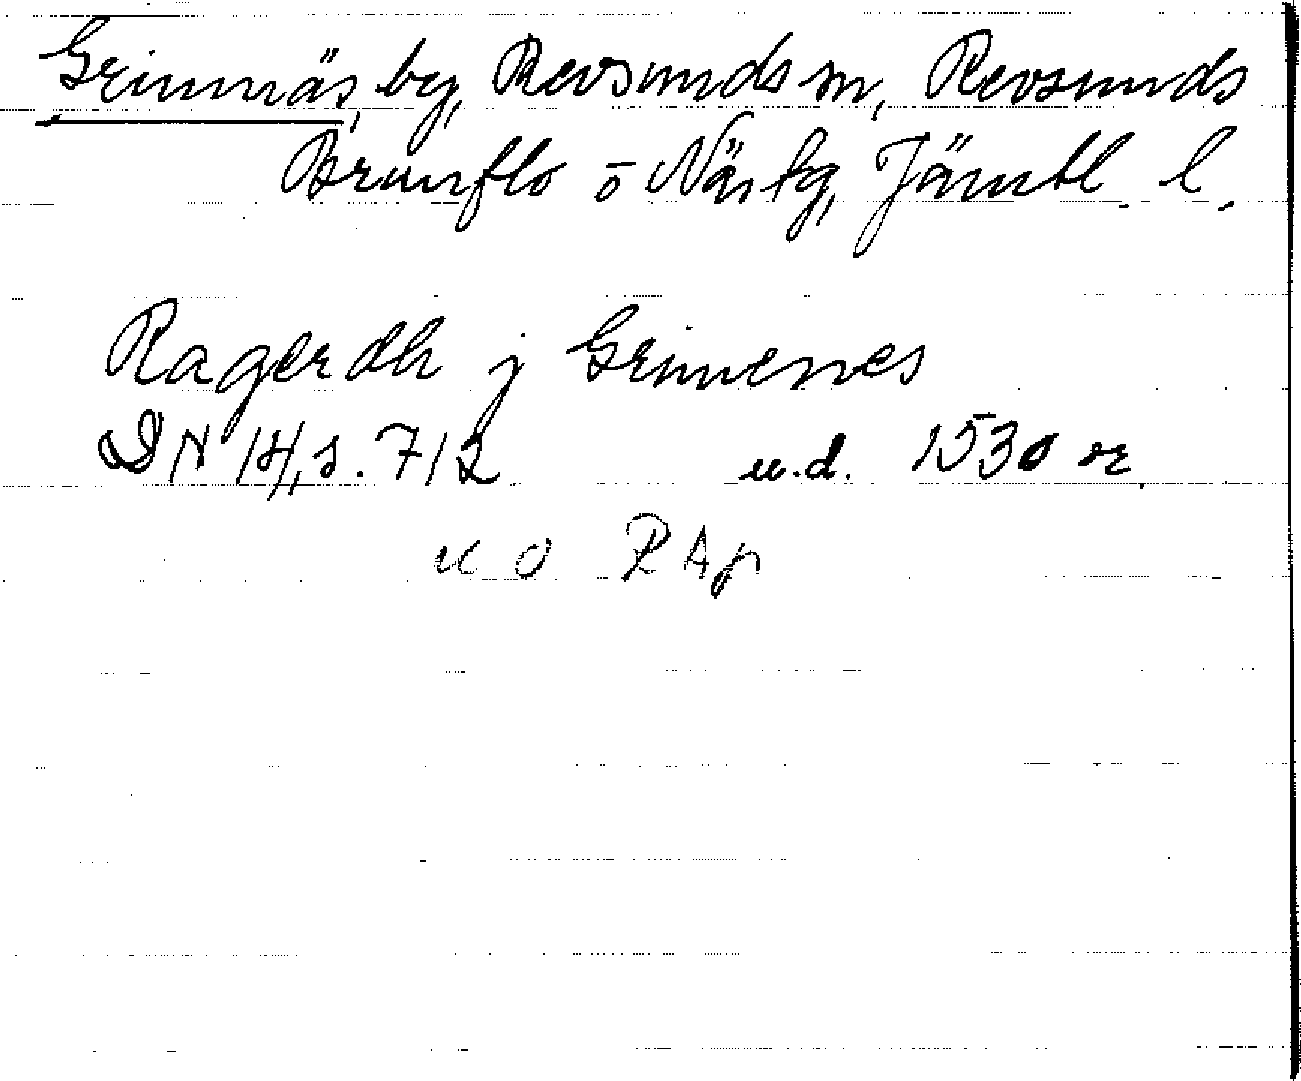 Grimnäs, by, Revsunds sn, Revsunds
Brunflo o Näs tg, Jämtl. l.
Ragerdh j Grimenes
DN 14, s. 712 u.d. 1530 år
u o RAp